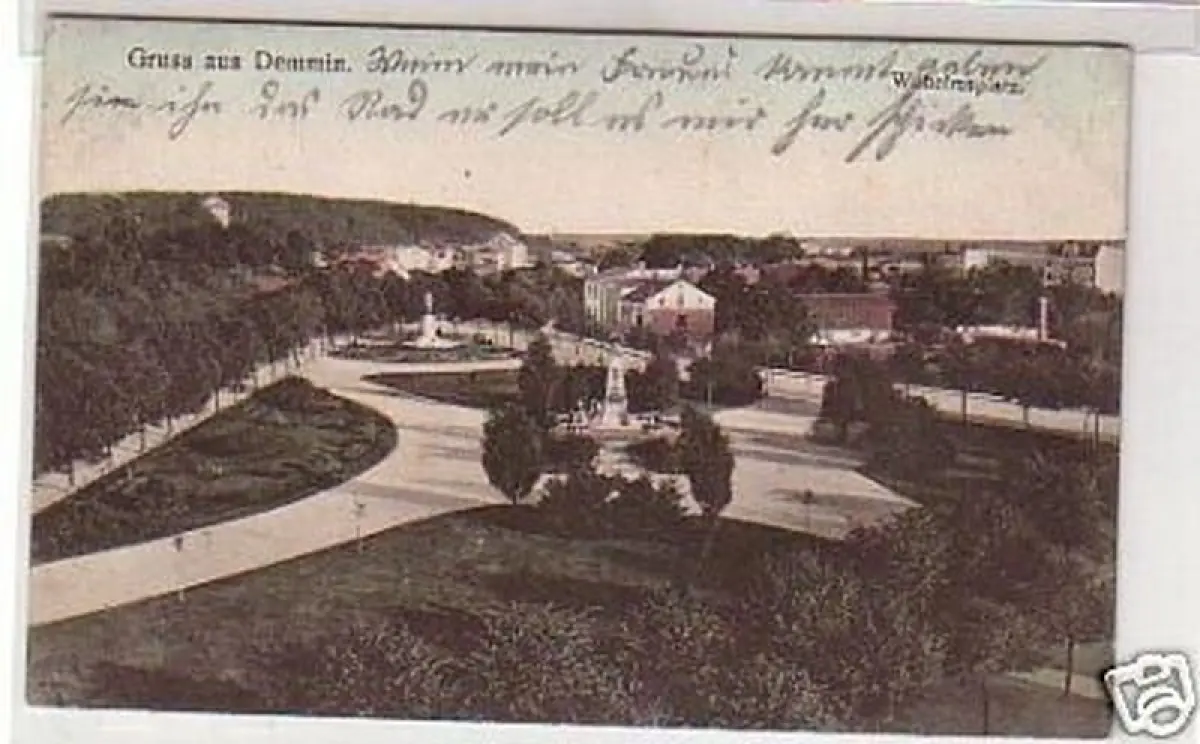 Gruss aus Demmin. Wenn mein kommt geben
Wilhelmsplatz.
sie ihn das Rad er soll es mir her schicken